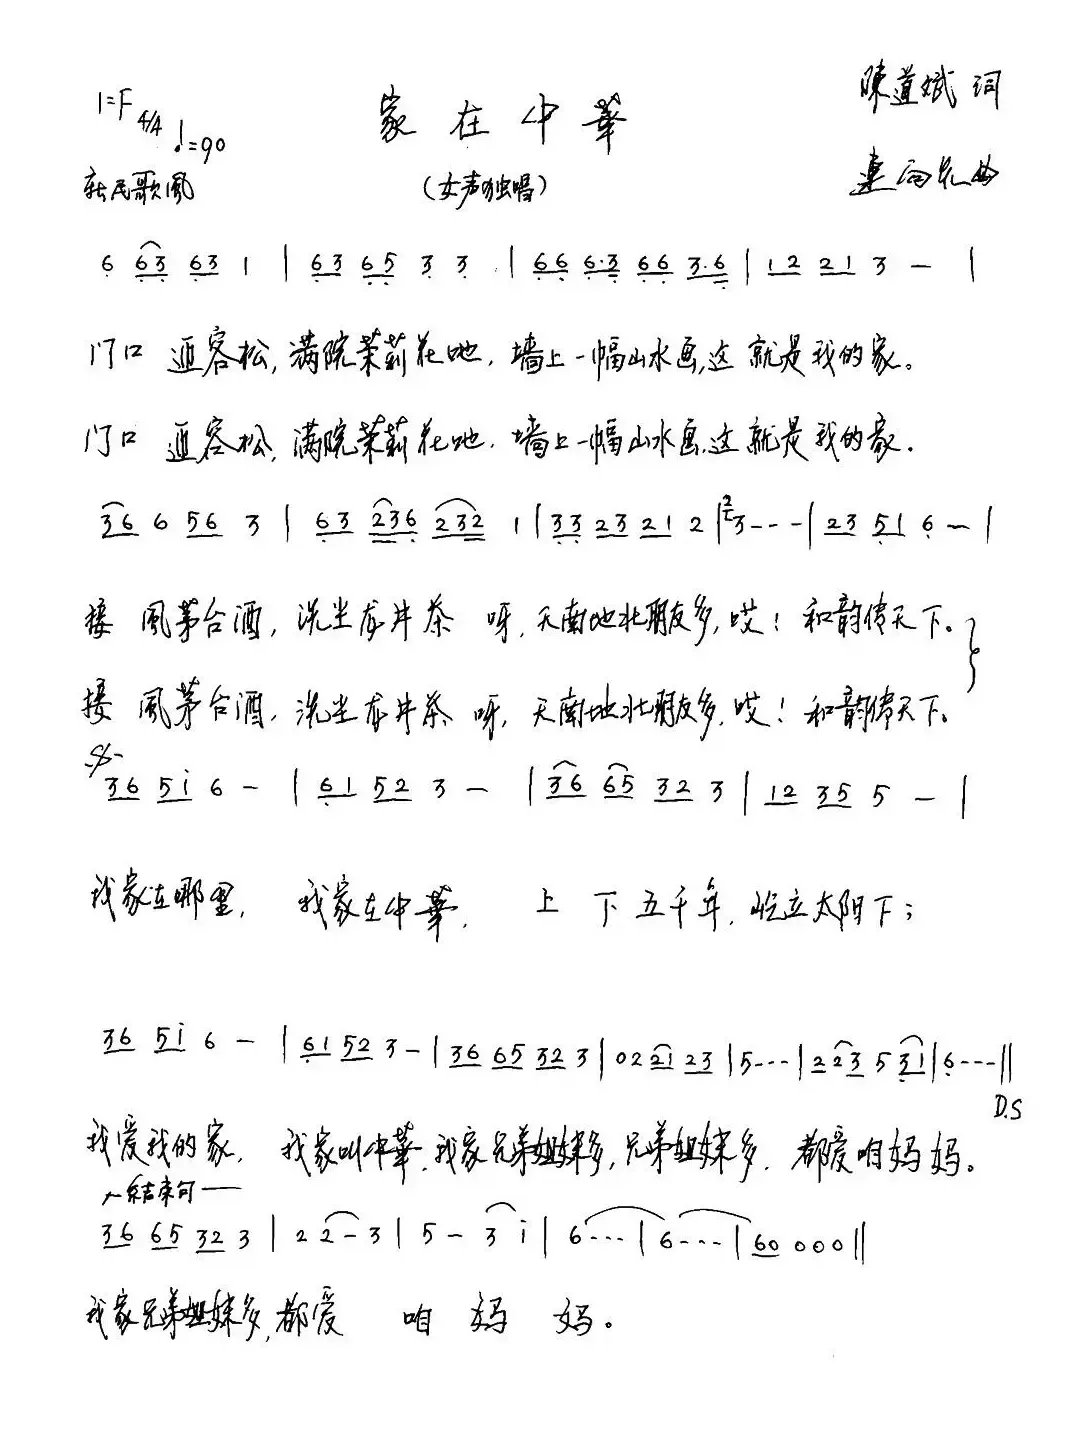 1=F 4/4 ♩=90
家在中華
陳道斌 词
新民歌風
(女声独唱)
曲
6 63 63 1 | 63 65 3 3 | 66 6·3 66 3·6 | 12 21 3 — |
门口 迎客松,满院茉莉花吔,墙上一幅山水画,这就是我的家。
门口 迎客松,满院茉莉花吔,墙上一幅山水画,这就是我的家。
36 6 56 3 | 63 236 232 1 | 33 23 21 2 | 3--- | 23 51 6 — |
接風茅台酒,洗尘龙井茶 呀,天南地北朋友多,哎!和韵传天下。
接風茅台酒,洗尘龙井茶 呀,天南地北朋友多,哎!和韵传天下。
36 5i 6 - | 61 52 3 — | 36 65 32 3 | 12 35 5 — |
我家在哪里, 我家在中華, 上下五千年,屹立太阳下;
36 5i 6 — | 61 52 3 — | 36 65 32 3 | 02 21 23 | 5--- | 223 5 31 | 6--- ||
D.S
我爱我的家, 我家叫中華,我家兄弟姐妹多,兄弟姐妹多, 都爱咱妈妈。
结束句
36 65 32 3 | 2 2-3 | 5 - 3 i | 6--- | 6--- | 60 000 ||
我家兄弟姐妹多,都爱 咱 妈 妈。